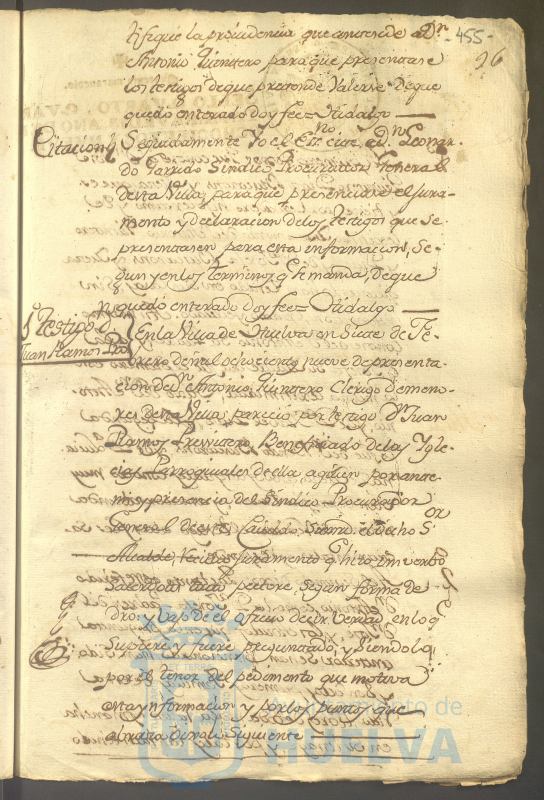 -455-
96
tifique la providencia que antecede a Dn.
Antonio Quintero para que presentase
los testigos de que pretende Valerse De que
quedo enterado doy fee = Hidalgo
Citacion
Seguidamente Yo el Esno. cite a Dn. Leonar
do Garrido Sindico Procurador General
de esta Villa para que presenciase el jura-
mento y declaracion de los testigos que se
presentasen para esta informacion, Se-
gun y en los terminos q. se manda, De que
quedó enterado doy fee = Hidalgo
1o. Testigo Dn.
Juan Ramos Pro.
En la Villa de Huelva en Siete de Fe-
brero de mil ochociento nueve de presenta-
cion de Dn. Antonio Quintero Clerigo de meno-
res de esta Villa, parecio por testigo Dn. Juan
Ramos Presvitero Beneficiado de las Ygle-
cias Parroquiales de ella a quien por ante
mi y presencia del Sindico Procurador
General de este Caudal Comn. el dicho Sor.
Alcalde, recivio juramento q. hizo in verbo
Sacerdotis tacto pectore, segun forma de
dro. y vajo de el ofrecio decir verdad en lo q.
Supiere y fuere preguntado, y siendolo
por el tenor del pedimento que motiva
esta ynformacion y por los puntos que
abraza dixo lo Siguiente
Ayuntamiento de
HUELVA